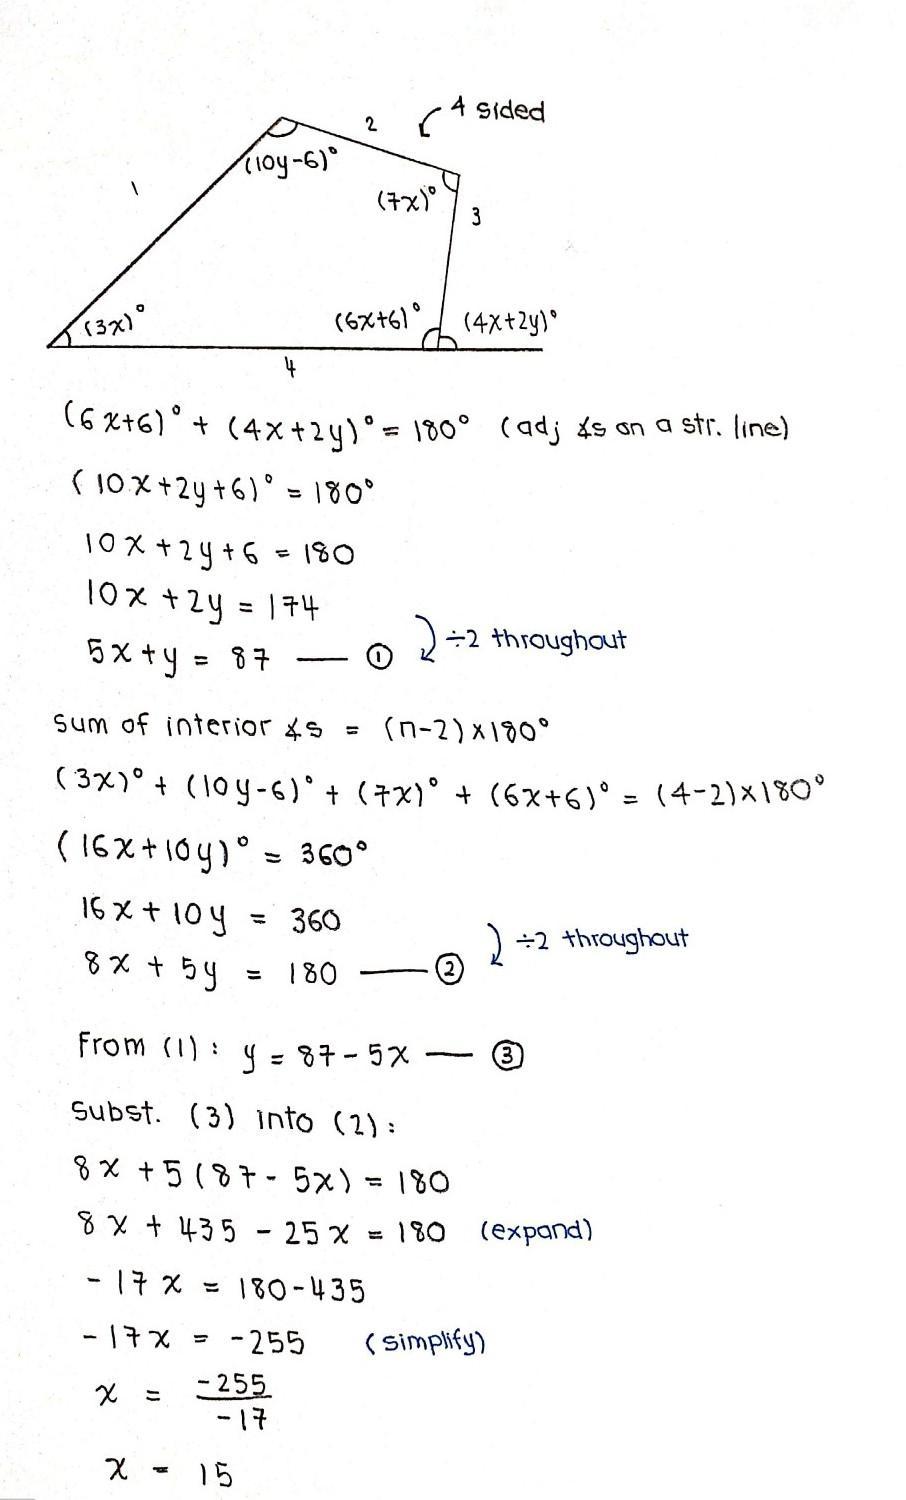 4 sided
2
(10y-6)°
1
(7x)°
3
(3x)°
(6x+6)° (4x+2y)°
4
(6x+6)° + (4x+2y)° = 180° (adj ∡s on a str. line)
(10x+2y+6)° = 180°
10x+2y+6 = 180
10x+2y = 174
÷2 throughout
5x+y = 87 — ①
sum of interior ∡s = (n-2)×180°
(3x)° + (10y-6)° + (7x)° + (6x+6)° = (4-2)×180°
(16x+10y)° = 360°
16x+10y = 360
÷2 throughout
8x + 5y = 180 — ②
From (1): y = 87-5x — ③
Subst. (3) into (2):
8x +5(87-5x) = 180
8x + 435 - 25x = 180 (expand)
-17x = 180-435
-17x = -255 (simplify)
x = -255/-17
x = 15